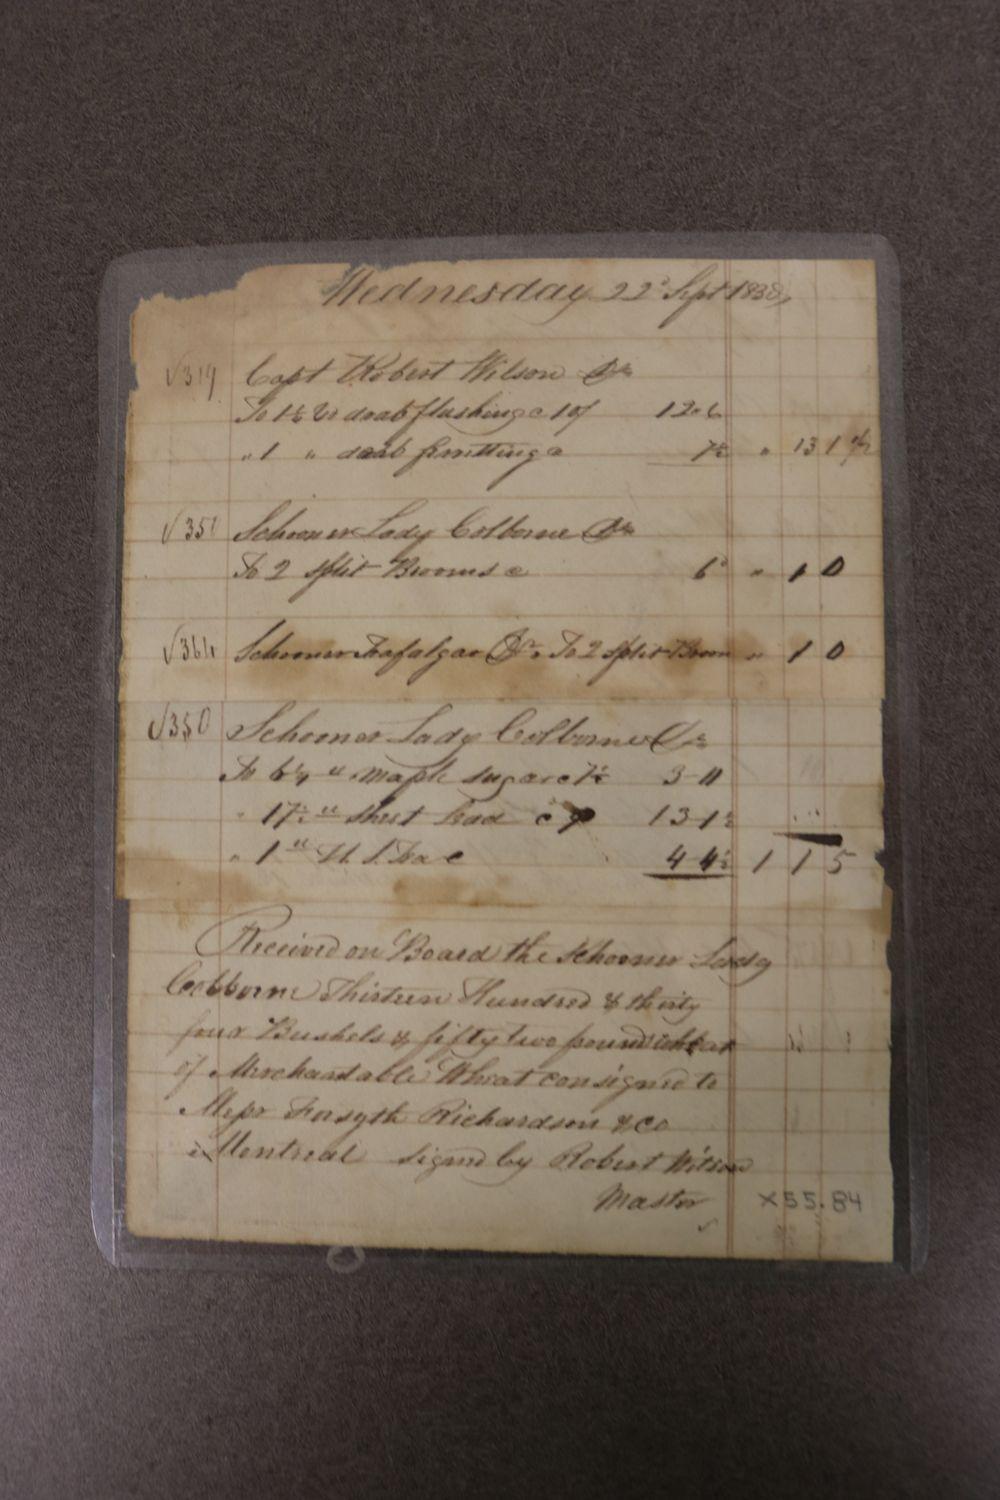 Wednesday 22d Sept 1830
√319 Capt Robert Wilson Dr
To 1¼ yd drab flushing @ 10/ 12.6
" 1 " drab @ 7½ " 13 1½
√351 Schooner Lady Colborne Dr
To 2 split Brooms @ 6d " 1 0
√364 Schooner Trafalgar Dr. To 2 split Broom " 1 0
√350 Schooner Lady Colborne Dr
To 6¼ " maple sugar @ 7½ 3-11
" 17½ " sheet Lead @ 9 13-1½
" 1 " Tea @ 4-4½ 1 1 5
Received on Board the Schooner Lady
Colborne Thirteen Hundred & thirty
four Bushels & fifty two pound
of Merchantable Wheat consigned to
Messr Forsyth Richardson & Co
Montreal signed by Robert Wilson
Master
X55.84